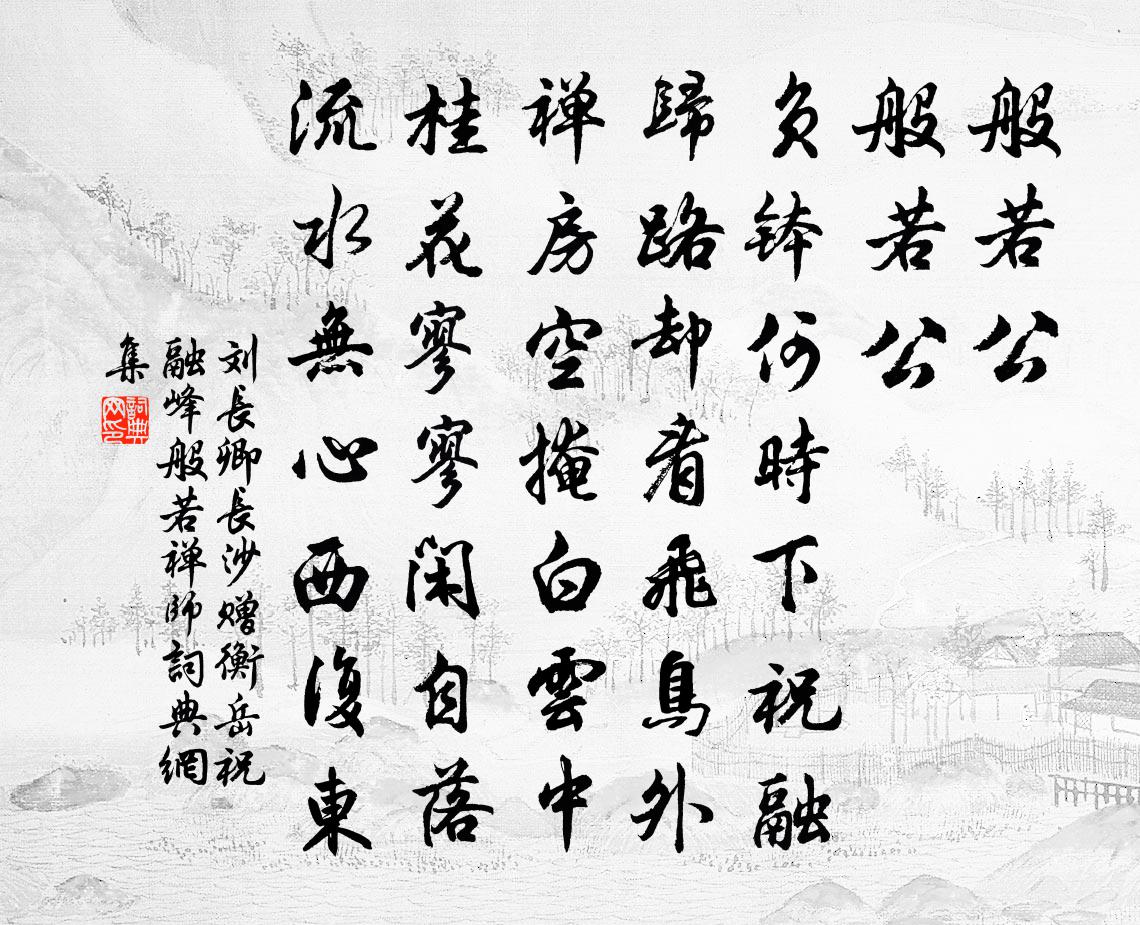 般若公
般若公
負钵何時下祝融
歸路却看飛鳥外
禅房空掩白雲中
桂花寥寥闲自落
流水無心西復東
刘長卿長沙赠衡岳祝
融峰般若禅師詞典網
集
詞典网印